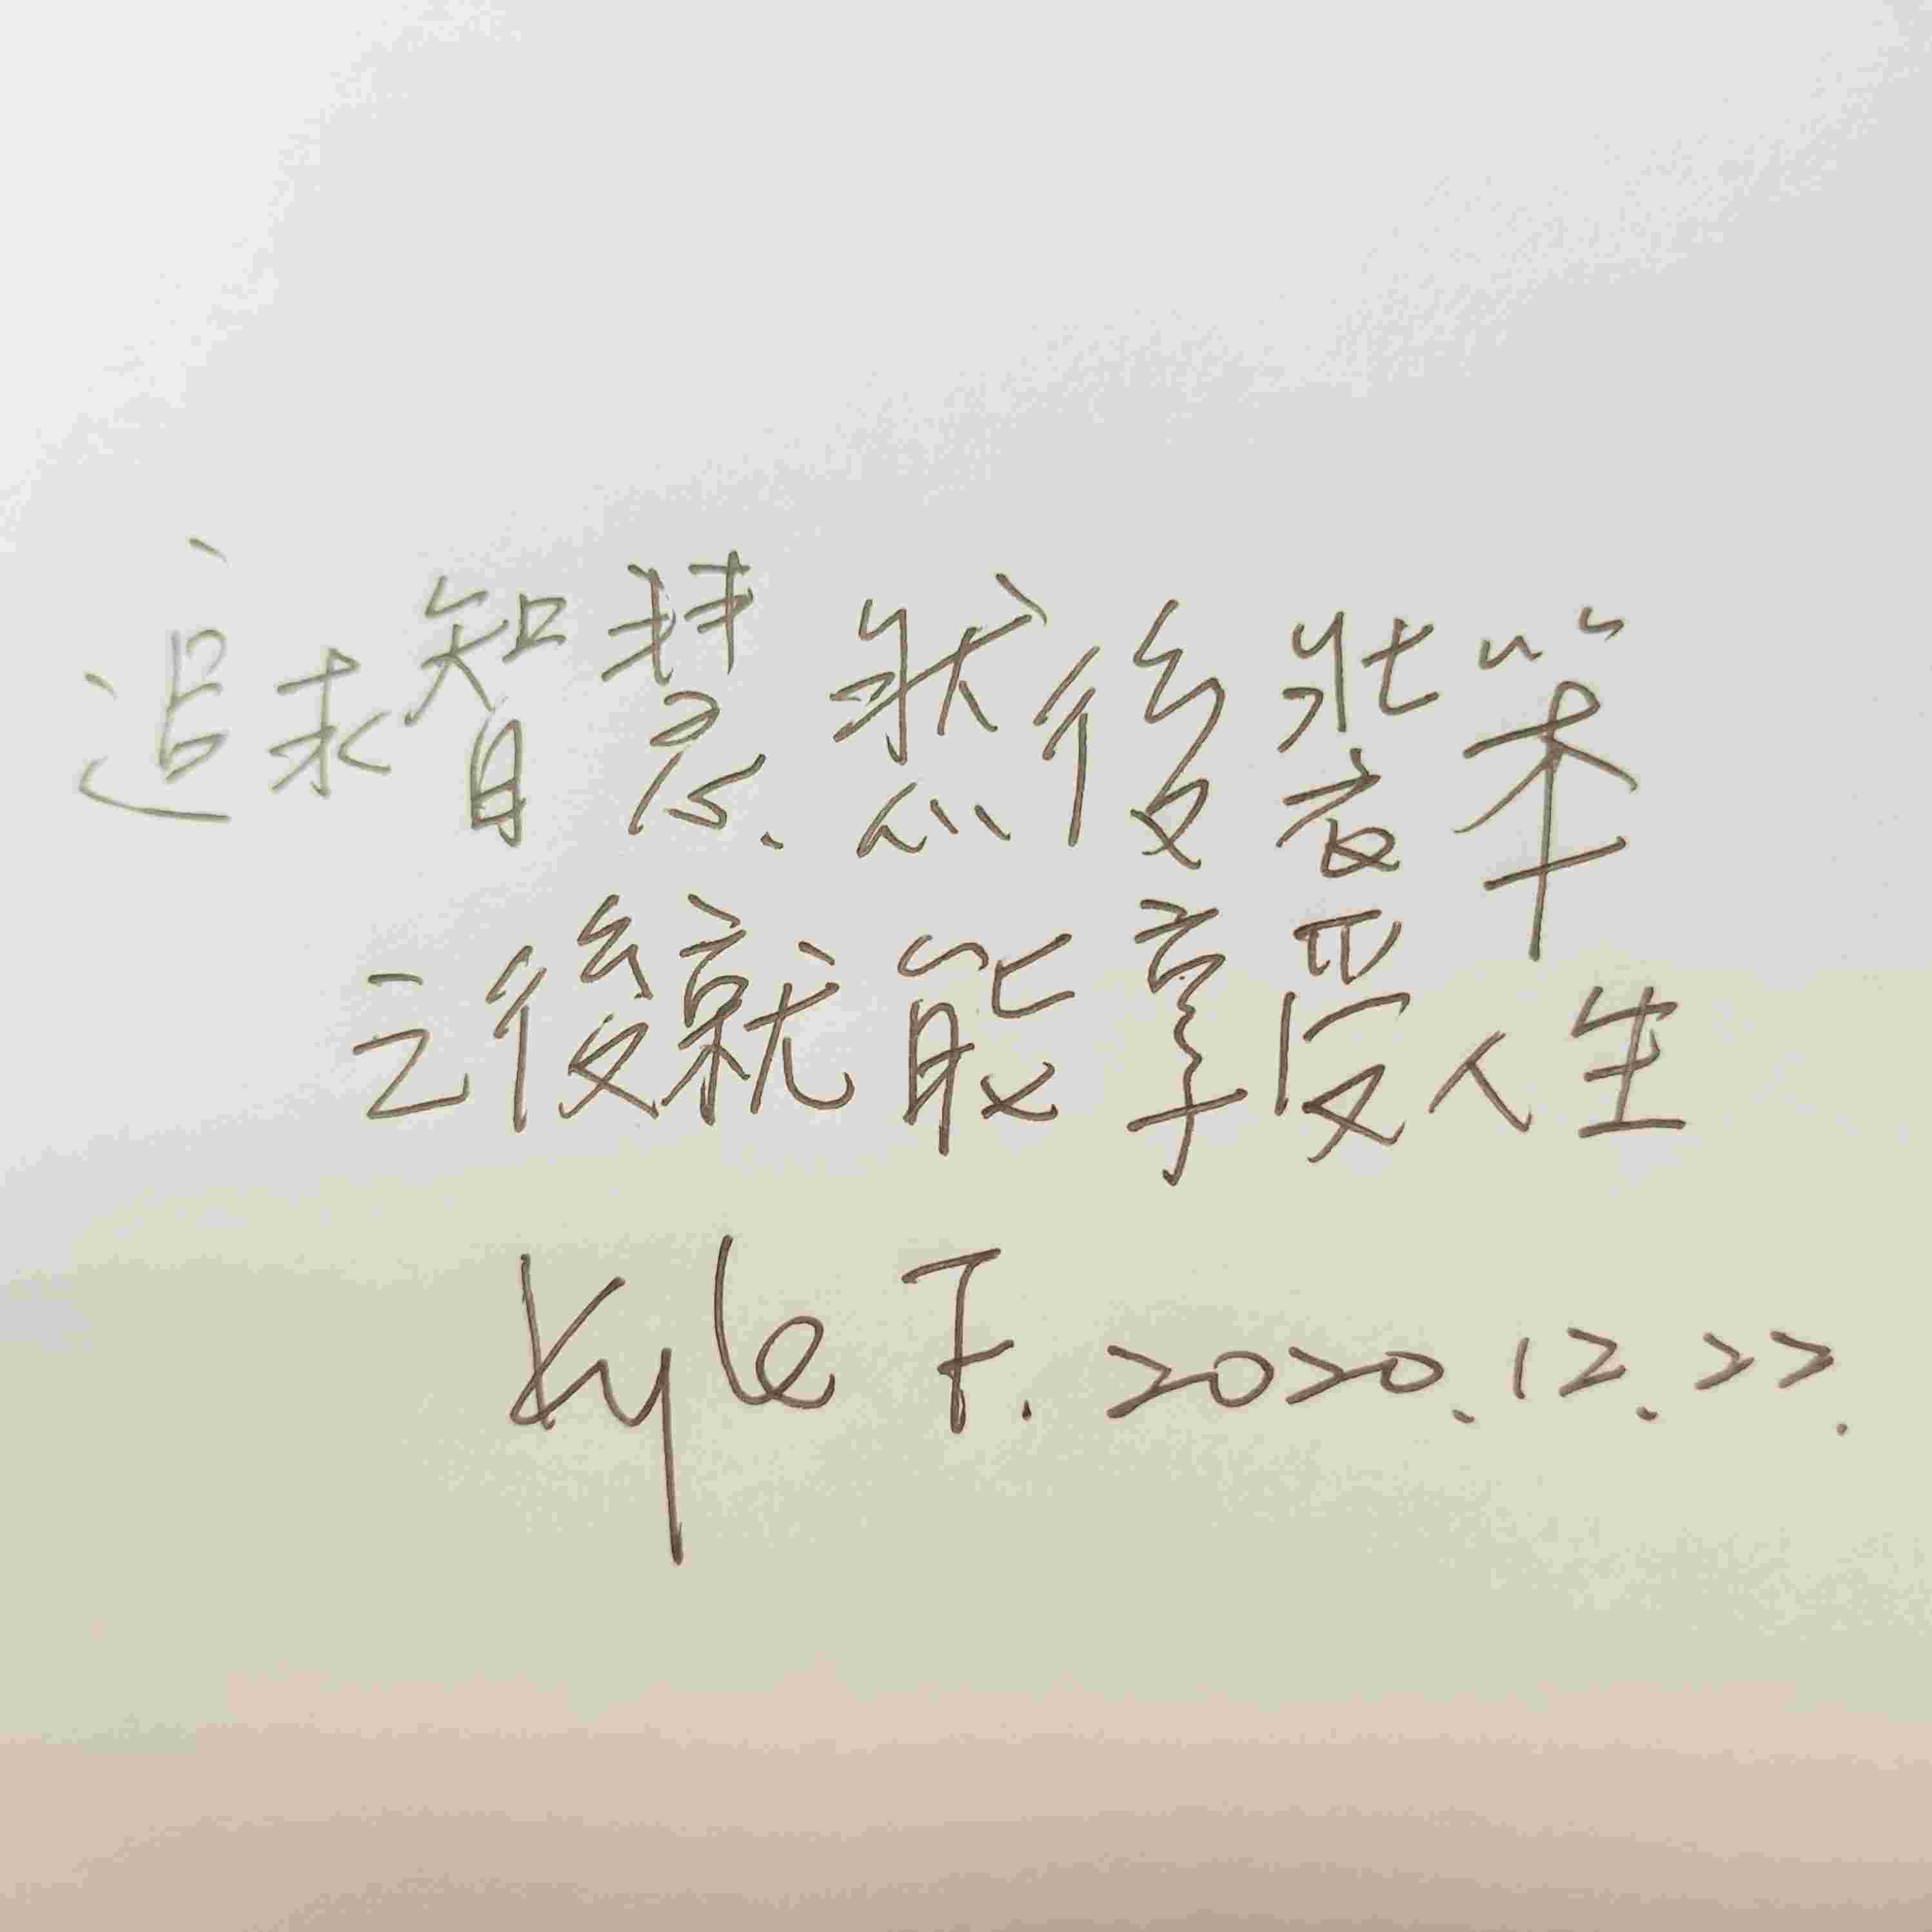 追求智慧.然後裝笨
之後就能享受人生
Kyle F. 2020.12.22.